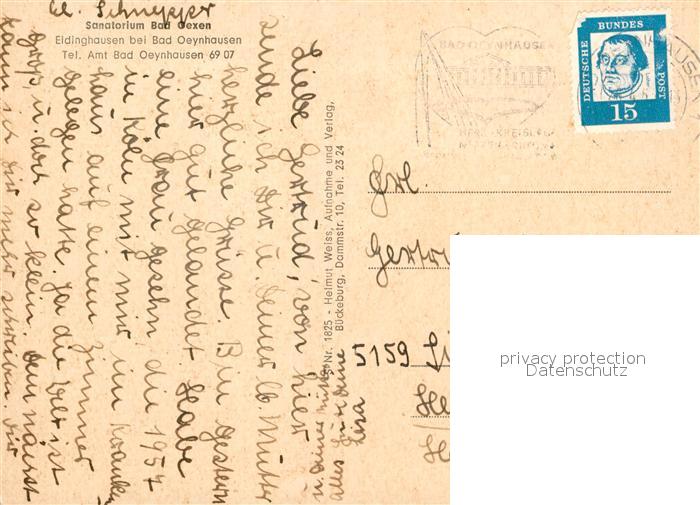 bl. Schnepper
Sanatorium Bad Oexen
Eidinghausen bei Bad Oeynhausen
Tel. Amt Bad Oeynhausen 69 07
Liebe Gertrud, von hier
sende ich dir u. deiner lb. Mutter
herzliche Grüsse. Bin gestern
hier gut gelandet. Habe
eine Frau gesehn die 1957
in Köln mit mir im Kranken
haus auf einem Zimmer
gelegen hatte. Ja die Welt ist
groß, u. doch so klein. Demnächst
kann ich dir mehr schreiben. Dir
u. deiner Mutter
alles Gute deine
Lisa
Nr. 1825 - Helmut Weiss, Aufnahme und Verlag,
Bückeburg, Dammstr. 10, Tel. 23 24
BAD OEYNHAUSEN
DEUTSCHE BUNDES POST
15
Frl.
5159
privacy protection
Datenschutz